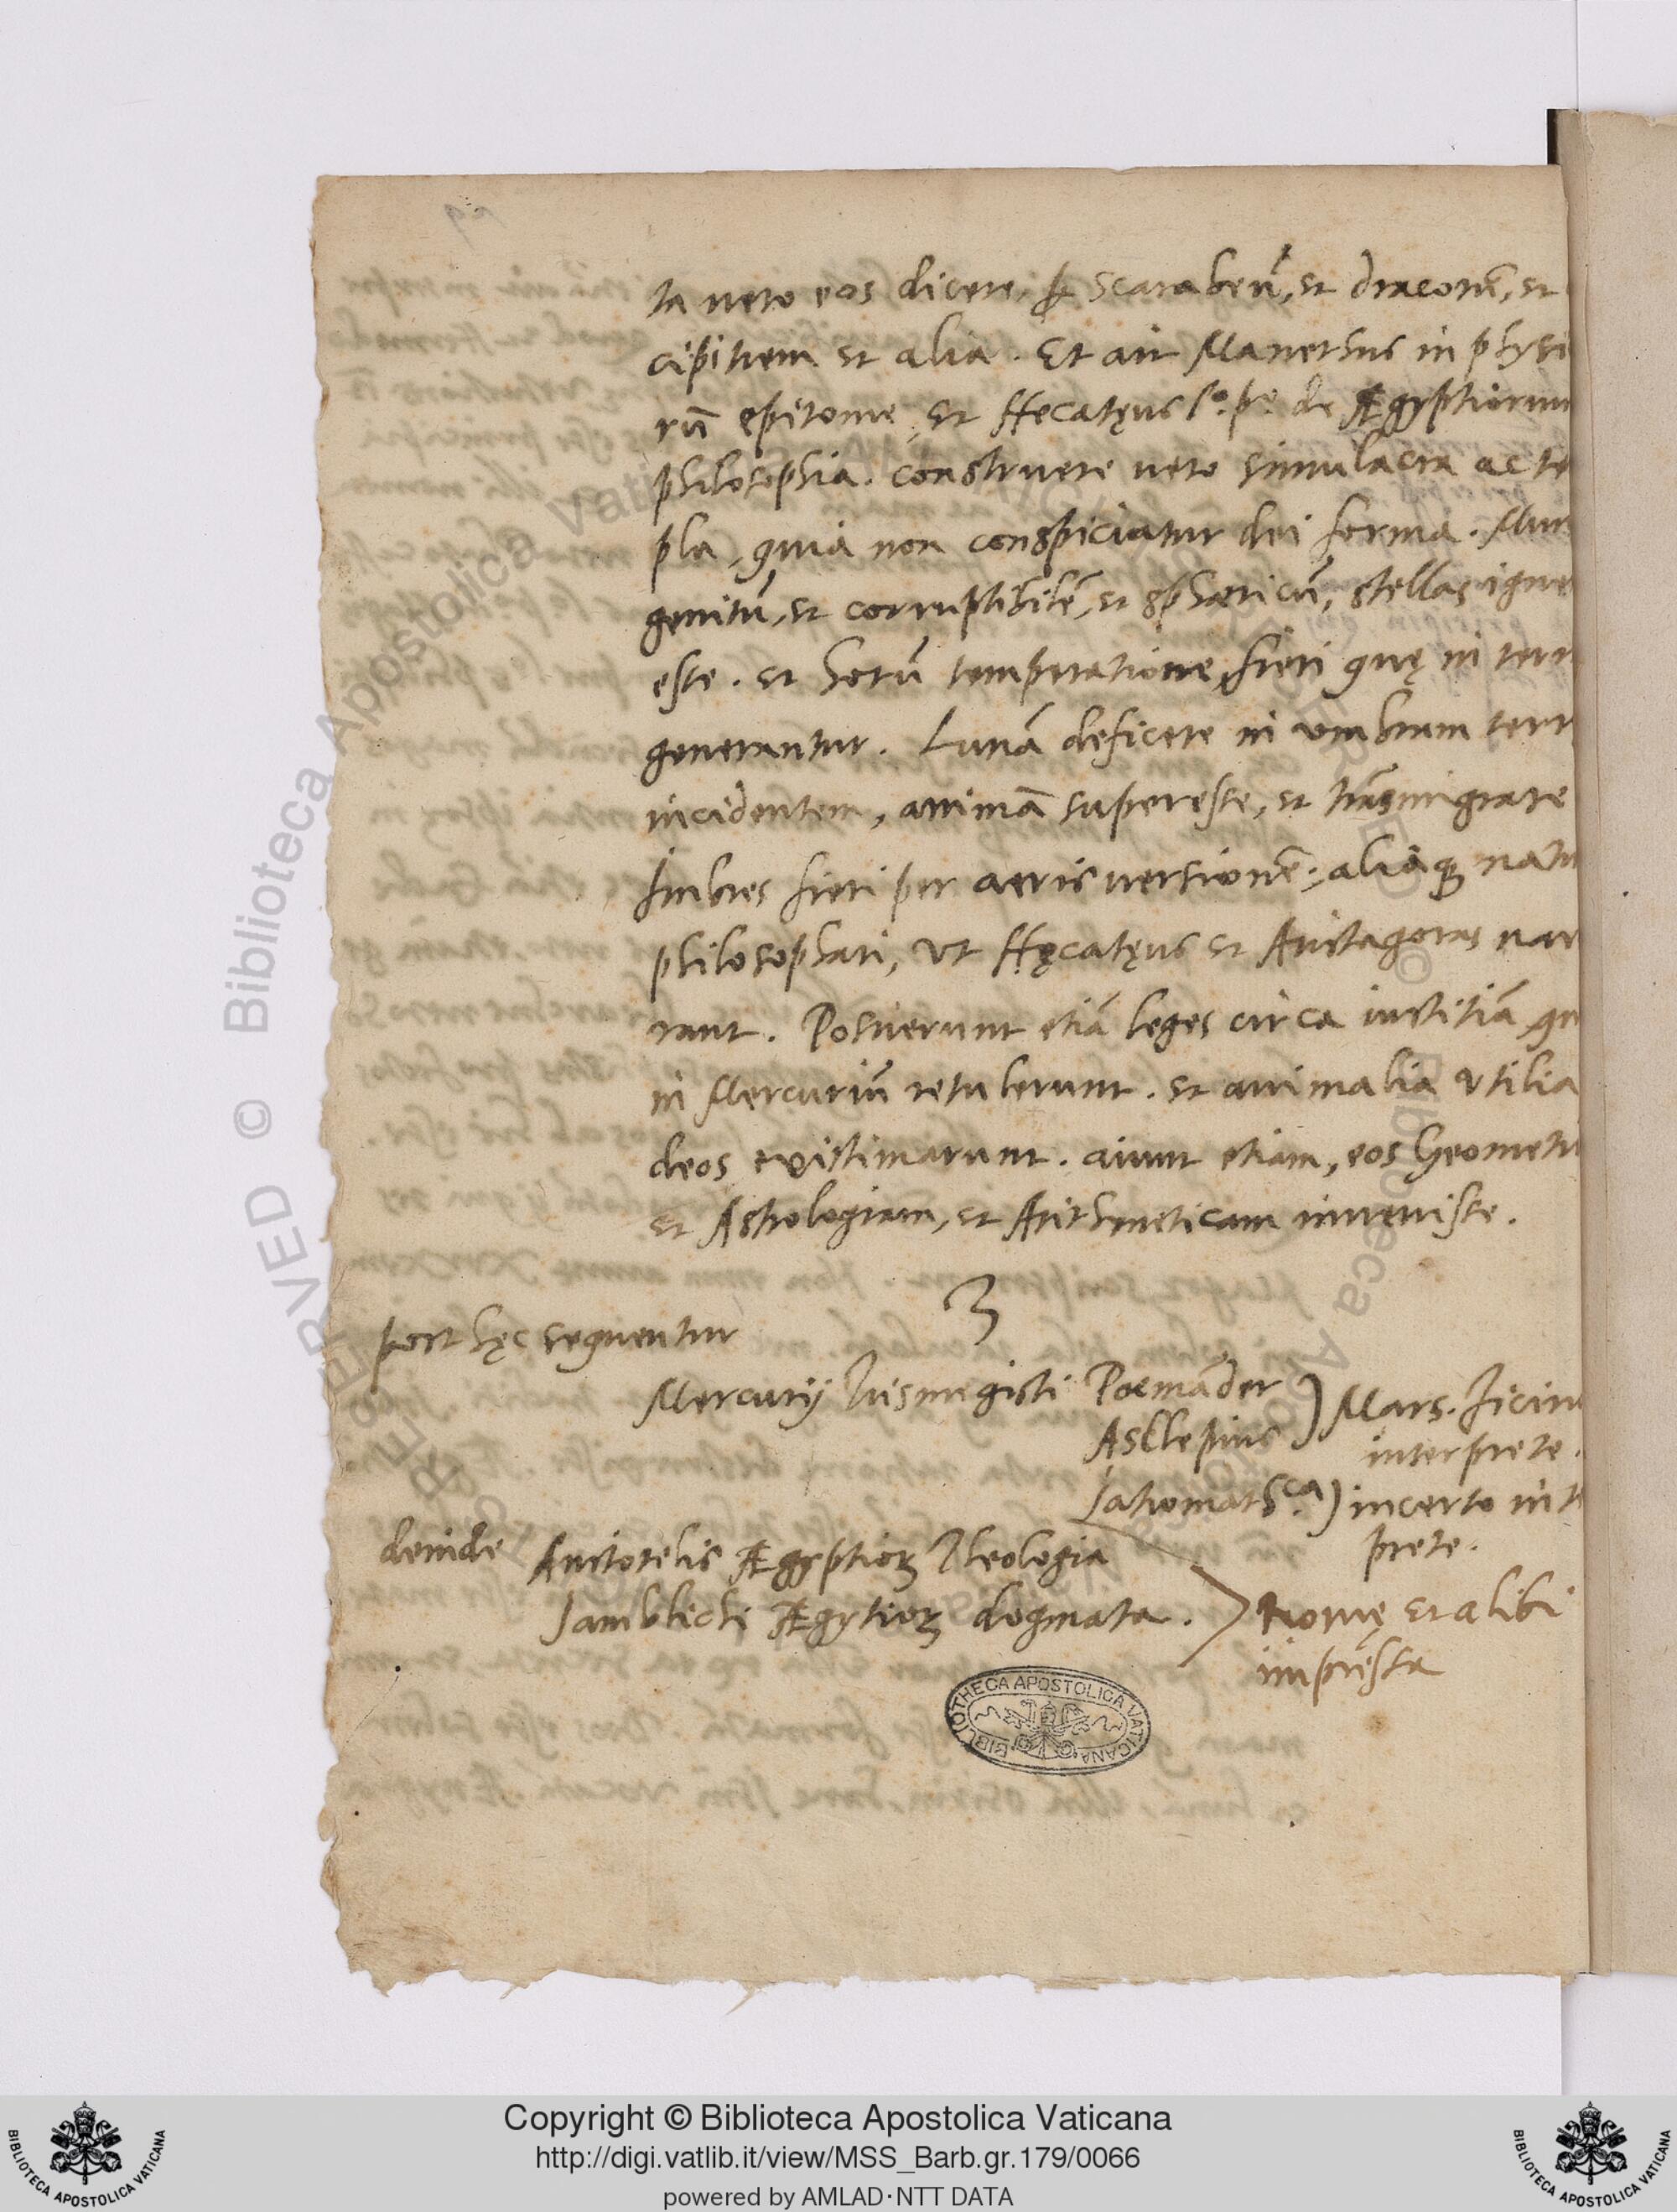 ta uero eos dicere, ꝑ scarabeū, et draconē, et
cipitrem et alia. Et ait Manethus in physi
rū epitome, et Hecatęus lº. pº. de Ægyptiorum
philosophia. construere uero simulacra ac te
pla, quia non conspiciatur dei forma. Mun
genitū, et corruptibilē, et sphæricū, stellas igne
esse. et horū temperatione fieri quę in terr
generantur. Lunā deficere in vmbram terr
incidentem, animā superesse, et trāsmigrare
Imbres fieri per aeris uersionē; aliaqꝫ natu
philosophari, vt Hęcatęus et Aristagoras nar
rant. Posuerunt etiā leges circa iustitiā, qu
in Mercuriū retulerunt. et animalia vtilia
deos existimarunt. aiunt etiam, eos Geometri
et Astrologiam, et Arithmeticam inuenisse.
3
post hęc sequentur
Mercurij Trismegisti Poemāder
Asclepius ) Mars. Ficin
interprete.
Iatromathca) incerto inte
prete.
deinde Aristotelis Ægyptioꝝ Theologia
Iamblichi Ægytioꝝ dogmata. > Romę et alibi
imprēssa
BIBLIOTHECA APOSTOLICA VATICANA
© Biblioteca Apostolica Vaticana
Copyright © Biblioteca Apostolica Vaticana
http://digi.vatlib.it/view/MSS_Barb.gr.179/0066
powered by AMLAD·NTT DATA
BIBLIOTECA APOSTOLICA VATICANA
BIBLIOTECA APOSTOLICA VATICANA